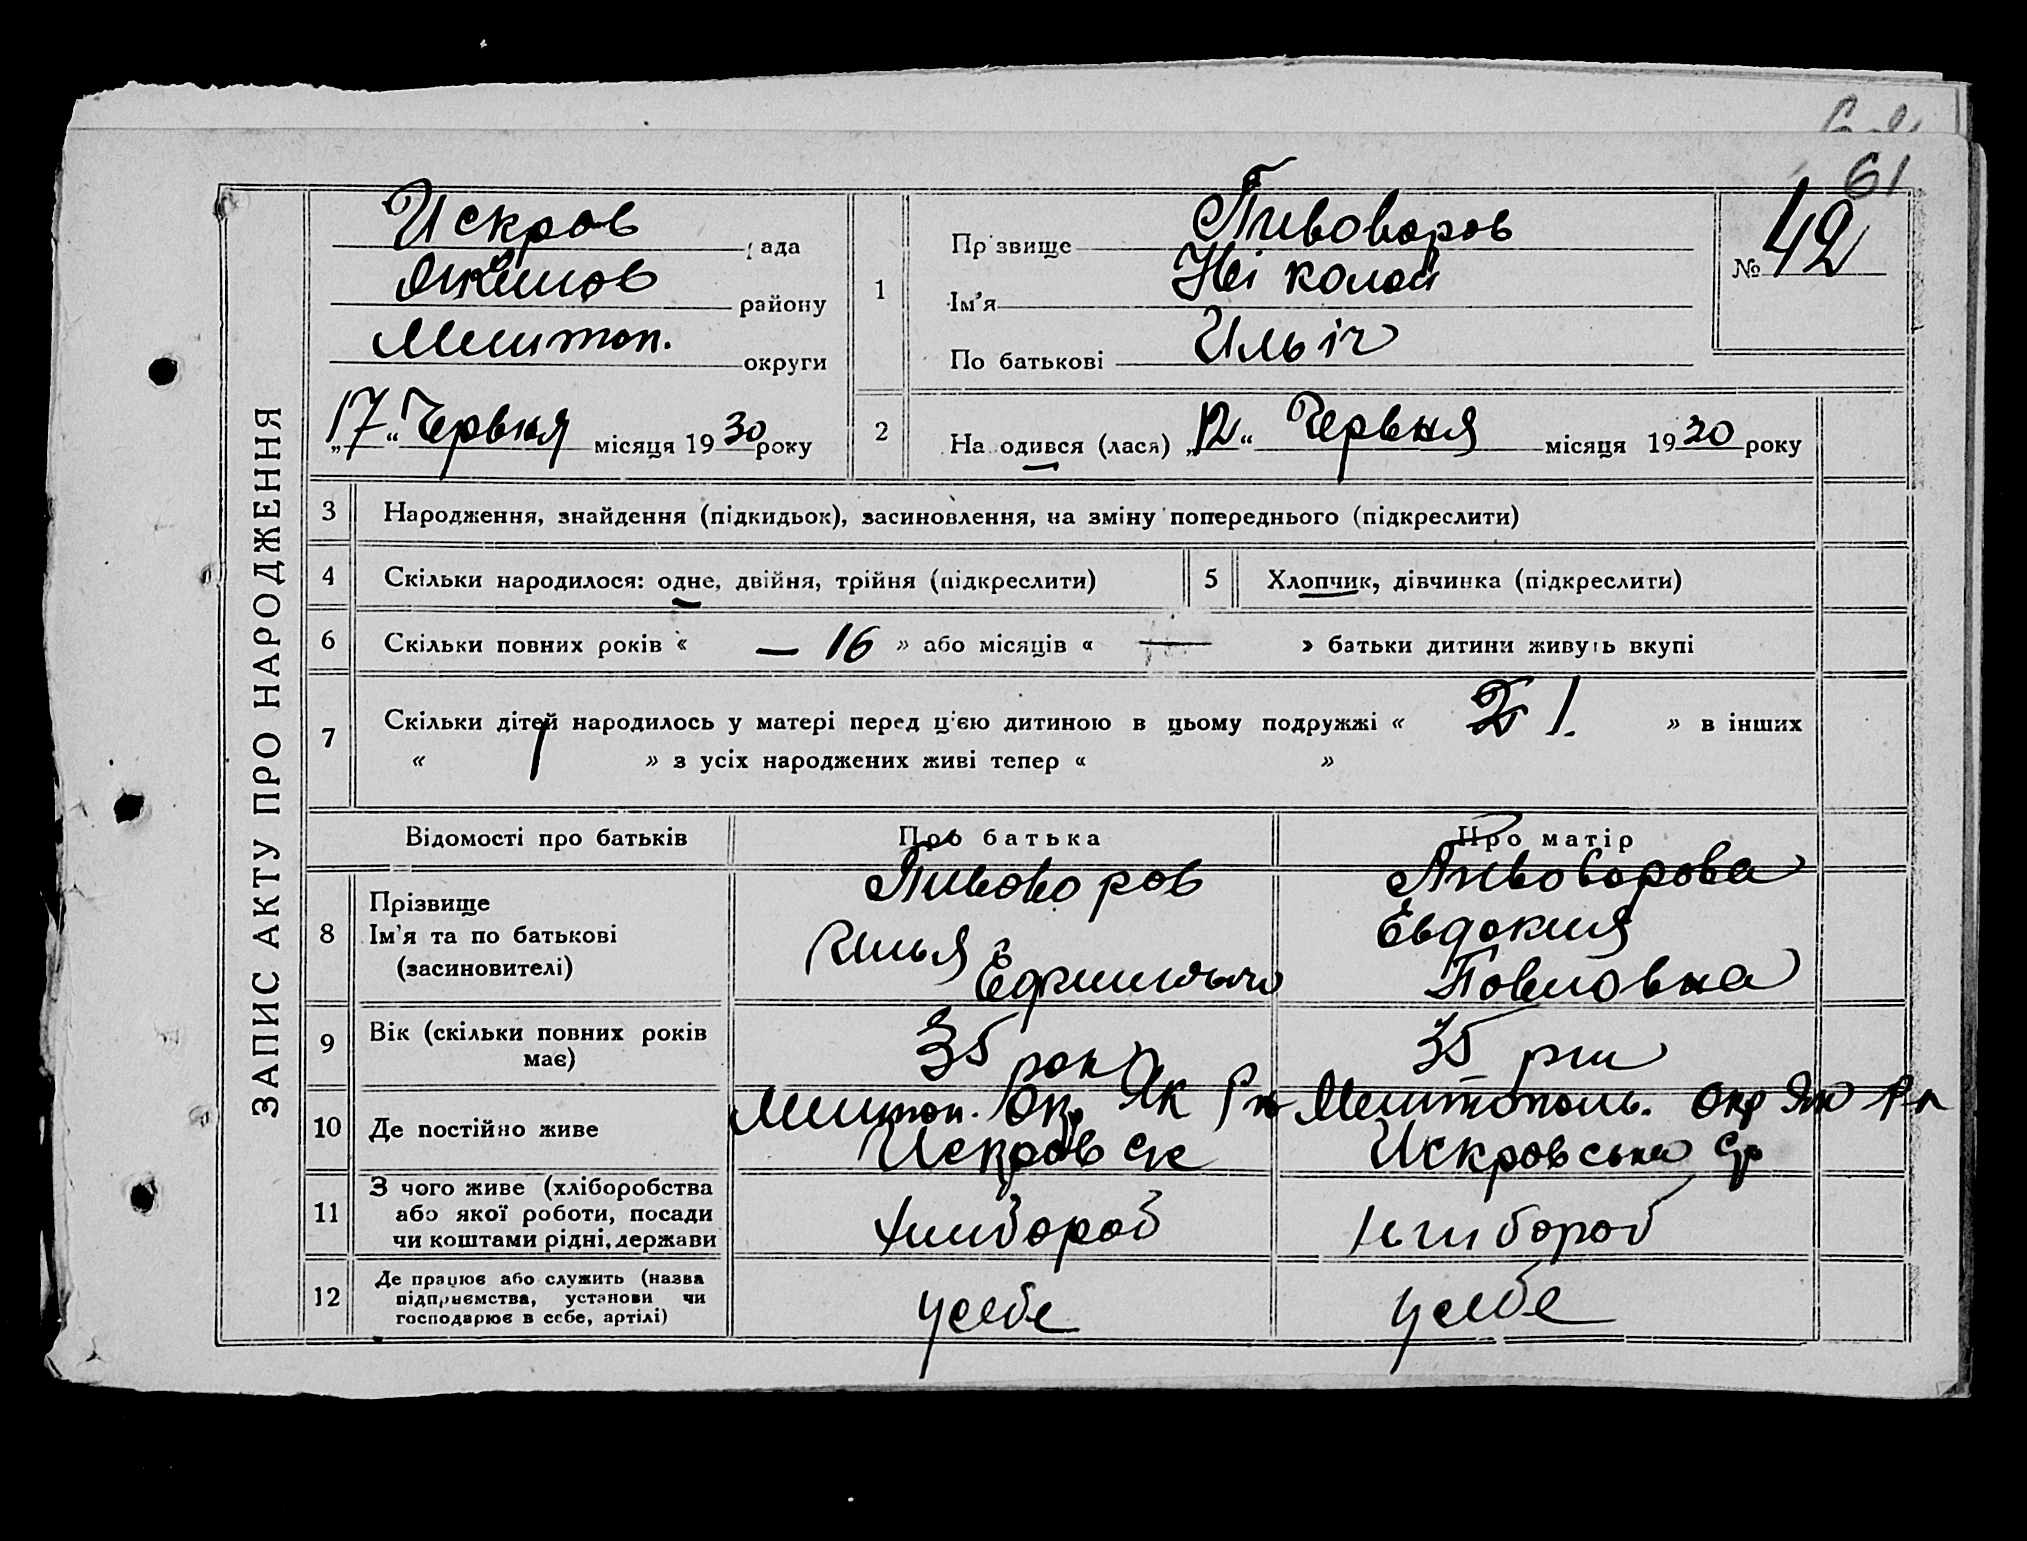 61
ЗАПИС АКТУ ПРО НАРОДЖЕННЯ
Искров рада
Якимов району
Мелитоп. округи
„17“ Червня місяця 1930 року
1
Прізвище Пивоваров
Ім’я Ніколай
По батькові Ильіч
№ 42
2 Народився (лася) „12“ Червня місяця 1930 року
3 Народження, знайдення (підкидьок), засиновлення, на зміну попереднього (підкреслити)
4 Скільки народилося: одне, двійня, трійня (підкреслити)
5 Хлопчик, дівчинка (підкреслити)
6 Скільки повних років « — 16 » або місяців « — » батьки дитини живуть вкупі
7 Скільки дітей народилось у матері перед цією дитиною в цьому подружжі « 1. » в інших
« 1 » з усіх народжених живі тепер « »
Відомості про батьків Про батька Про матір
8 Прізвище
Ім’я та по батькові
(засиновителі)
Пивоваров
Илья
Пивоварова
Евдокия
Повловна
9 Вік (скільки повних років
має)
35 рок
35
10 Де постійно живе
Мелитоп. Окр Як Рн
Искров
Мелитополь. Окр Як Рн
Искровська
11 З чого живе (хліборобства
або якої роботи, посади
чи коштами рідні, держави
хлибороб
хлибороб
12 Де працює або служить (назва
підприємства, установи чи
господарює в себе, артілі)
у себе
у себе